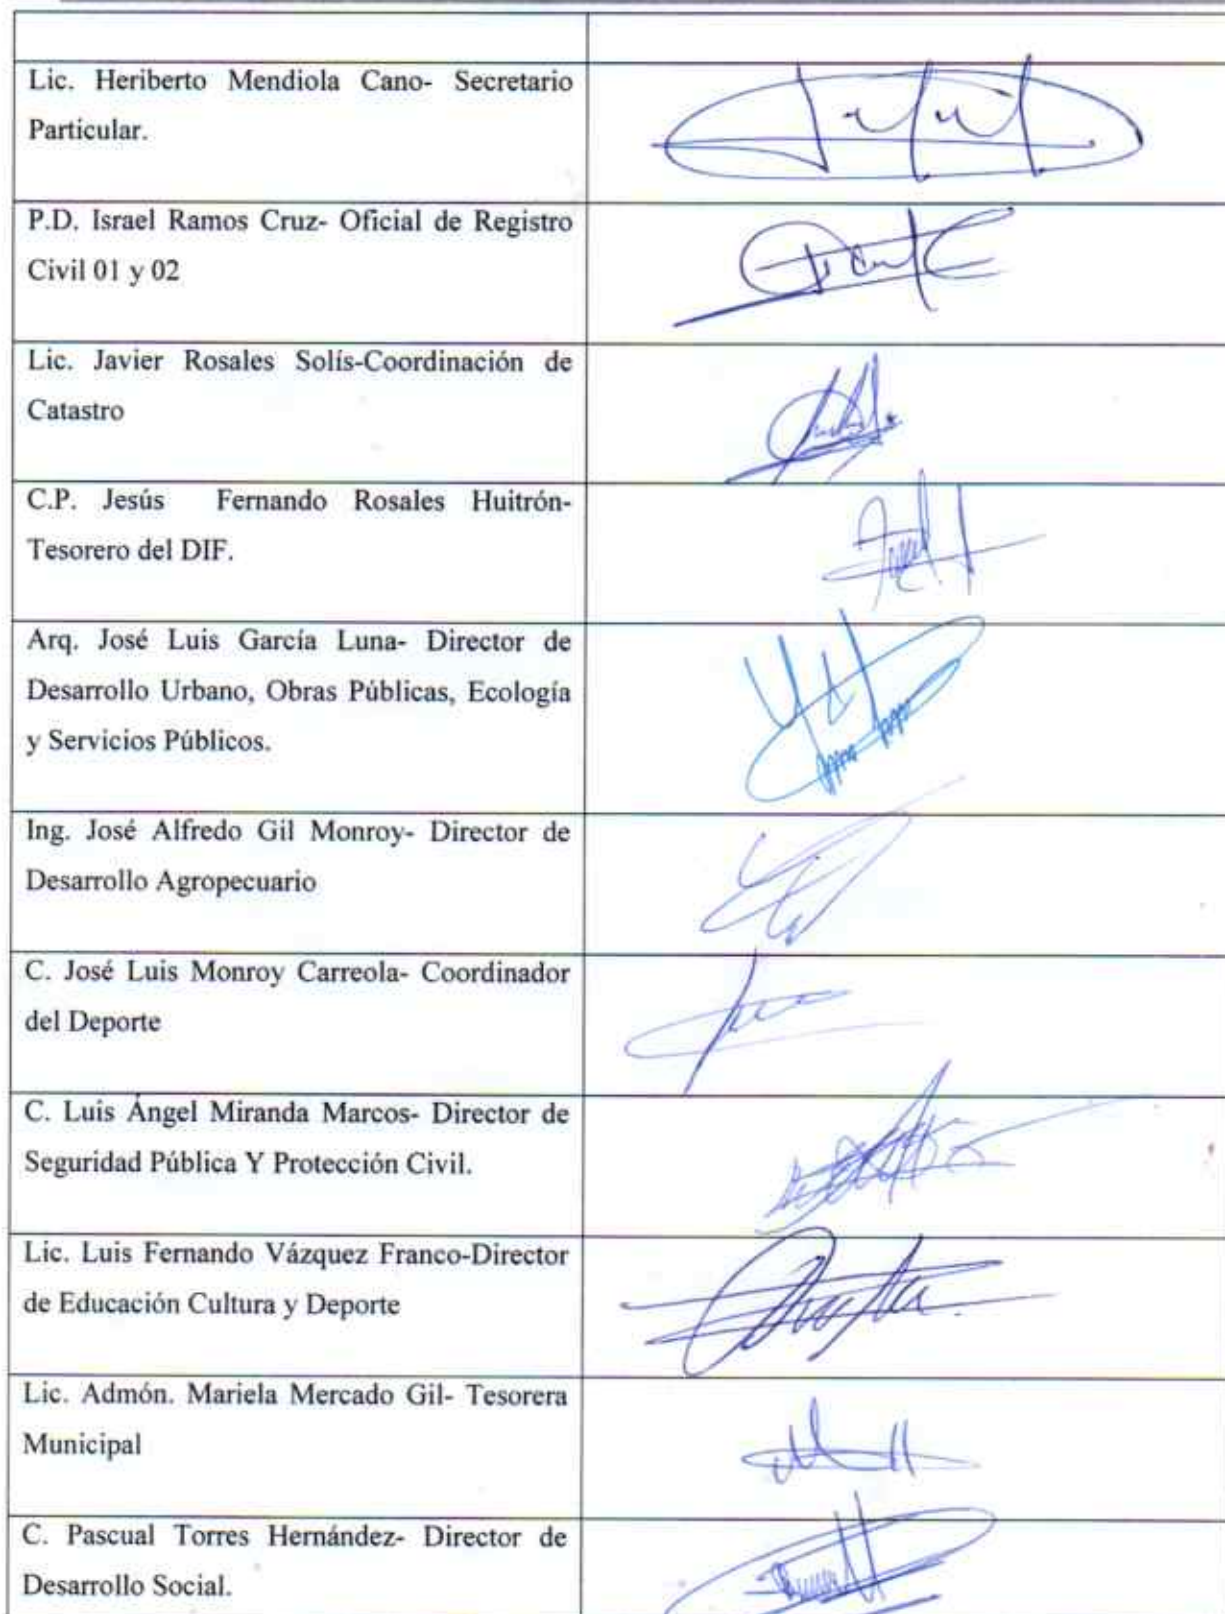 Lic. Heriberto Mendiola Cano- Secretario
Particular.
P.D. Israel Ramos Cruz- Oficial de Registro
Civil 01 y 02
Lic. Javier Rosales Solís-Coordinación de
Catastro
C.P. Jesús Fernando Rosales Huitrón-
Tesorero del DIF.
Arq. José Luis García Luna- Director de
Desarrollo Urbano, Obras Públicas, Ecología
y Servicios Públicos.
Ing. José Alfredo Gil Monroy- Director de
Desarrollo Agropecuario
C. José Luis Monroy Carreola- Coordinador
del Deporte
C. Luis Ángel Miranda Marcos- Director de
Seguridad Pública Y Protección Civil.
Lic. Luis Fernando Vázquez Franco-Director
de Educación Cultura y Deporte
Lic. Admón. Mariela Mercado Gil- Tesorera
Municipal
C. Pascual Torres Hernández- Director de
Desarrollo Social.